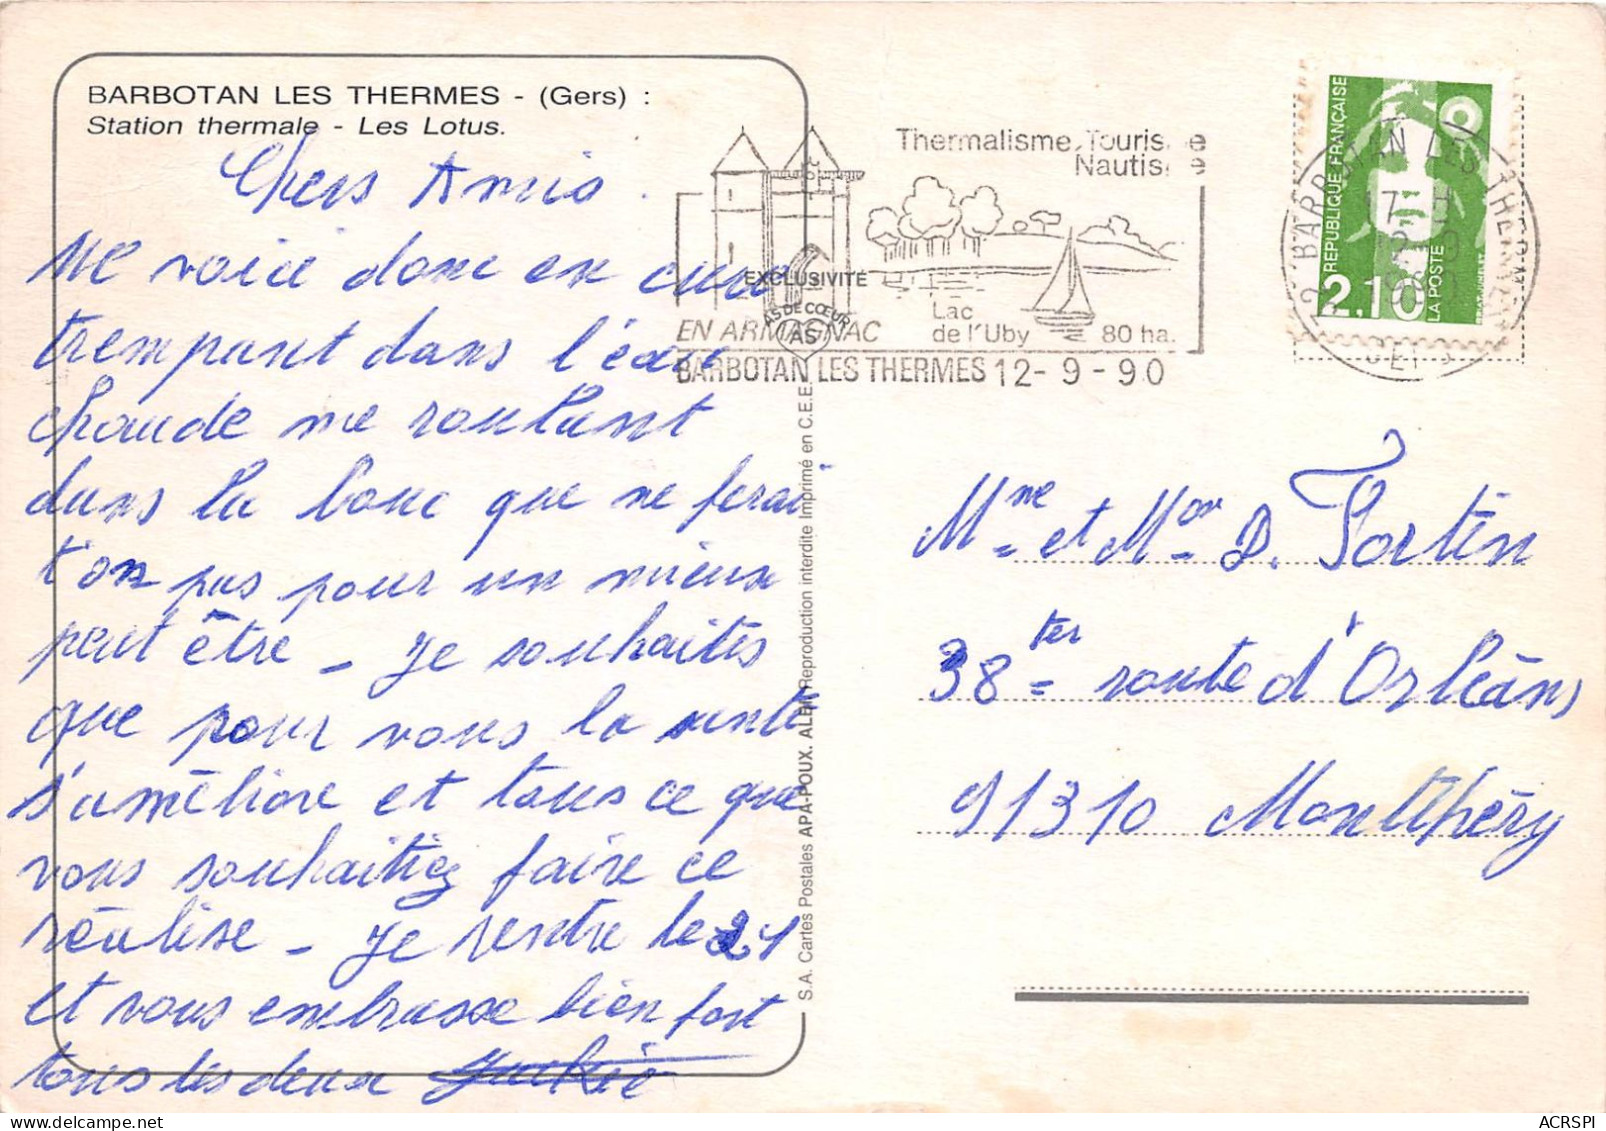 BARBOTAN LES THERMES - (Gers) :
Station thermale - Les Lotus.
Chers Amis
Me voici donc en cure
trempant dans l'eau
chaude me roulant
dans la boue que ne ferai
t'on pas pour un mieux
peut être - Je souhaites
que pour vous la santé
s'améliore et tous ce que
vous souhaitiez faire ce
réalise - Je rentre le 21
et vous embrasse bien fort
tous les deux
Thermalisme, Tourisme
Nautisme
EXCLUSIVITÉ
AS DE CŒUR
AS
EN ARMAGNAC
Lac
de l'Uby
80 ha.
BARBOTAN LES THERMES 12-9-90
S.A. Cartes Postales APA-POUX. ALBI Reproduction interdite Imprimé en C.E.E.
REPUBLIQUE FRANÇAISE
2,10
LA POSTE
BARBOTAN LES THERMES
17 H
12 9
1990
Mme et Mor D. Fortin
38 ter route d'Orléans
91310 Montlhéry
ACRSPI